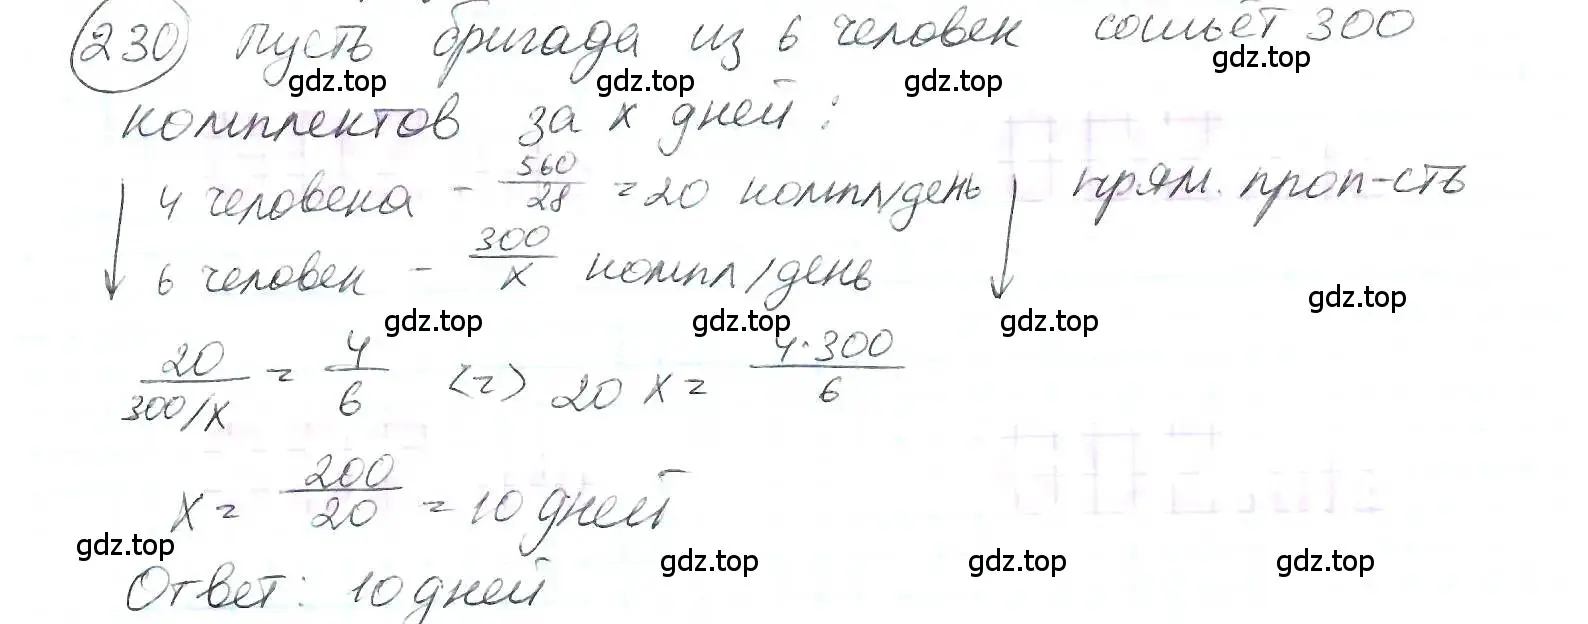 230 Пусть бригада из 6 человек сошьёт 300
gdz.top gdz.top gdz.top gdz.top
комплектов за x дней:
4 человека - 560/28 = 20 компл/день прям. проп-сть
6 человек - 300/x компл/день
gdz.top gdz.top gdz.top gdz.top
20/(300/x) = 4/6 <=> 20x = (4·300)/6
x = 200/20 = 10 дней
gdz.top gdz.top gdz.top gdz.top
Ответ: 10 дней